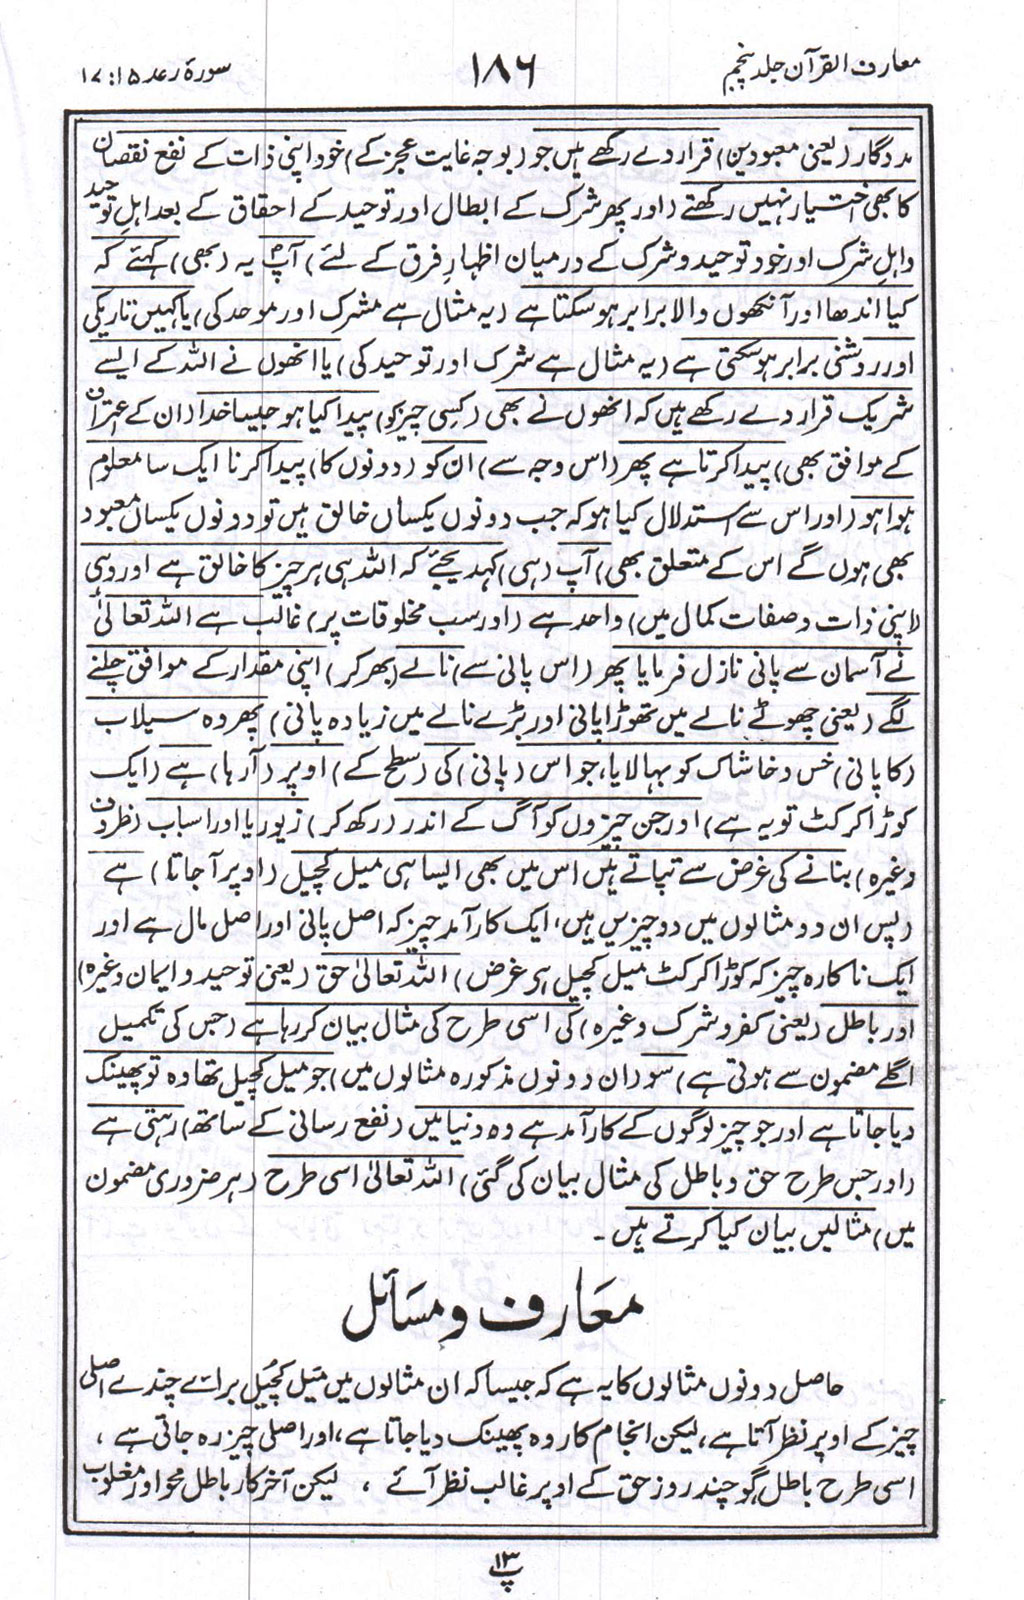 معارف القرآن جلد پنجم
۱۸۶
سورۂ رعد ۱۵ : ۱۷
مددگار (یعنی معبودین) قرار دے رکھے ہیں جو (بوجہ غایت عجز کے) خود اپنی ذات کے نفع نقصان
کا بھی اختیار نہیں رکھتے (اور پھر شرک کے ابطال اور توحید کے احقاق کے بعد اہلِ توحید
و اہلِ شرک اور خود توحید و شرک کے درمیان اظہارِ فرق کے لئے) آپؐ یہ (بھی) کہئے کہ
کیا اندھا اور آنکھوں والا برابر ہو سکتا ہے (یہ مثال ہے مشرک اور موحد کی) یا کہیں تاریکی
اور روشنی برابر ہو سکتی ہے (یہ مثال ہے شرک اور توحید کی) یا انھوں نے اللہ کے ایسے
شریک قرار دے رکھے ہیں کہ انھوں نے بھی (کسی چیز کو) پیدا کیا ہو جیسا خدا (ان کے اعتراف
کے موافق بھی) پیدا کرتا ہے پھر (اس وجہ سے) ان کو (دونوں کا) پیدا کرنا ایک سا معلوم
ہوا ہو (اور اس سے استدلال کیا ہو کہ جب دونوں یکساں خالق ہیں تو دونوں یکساں معبود
بھی ہوں گے اس کے متعلق بھی) آپ (ہی) کہہ دیجئے کہ اللہ ہی ہر چیز کا خالق ہے اور وہی
(اپنی ذات و صفات کمال میں) واحد ہے (اور سب مخلوقات پر) غالب ہے اللہ تعالیٰ
نے آسمان سے پانی نازل فرمایا پھر (اس پانی سے) نالے (بھر کر) اپنی مقدار کے موافق چلنے
لگے (یعنی چھوٹے نالے میں تھوڑا پانی اور بڑے نالے میں زیادہ پانی) پھر وہ سیلاب
(کا پانی) خس و خاشاک کو بہا لایا، جو اس (پانی) کی (سطح کے) اوپر (آ رہا) ہے (ایک
کوڑا کرکٹ تو یہ ہے) اور جن چیزوں کو آگ کے اندر (رکھ کر) زیور یا اور اسباب (ظروف
وغیرہ) بنانے کی غرض سے تپاتے ہیں اس میں بھی ایسا ہی میل کچیل (اوپر آجاتا) ہے
(پس ان دو مثالوں میں دو چیزیں ہیں، ایک کارآمد چیز کہ اصل پانی اور اصل مال ہے اور
ایک ناکارہ چیز کہ کوڑا کرکٹ میل کچیل ہی غرض) اللہ تعالیٰ حق (یعنی توحید و ایمان وغیرہ)
اور باطل (یعنی کفر و شرک وغیرہ) کی اسی طرح کی مثال بیان کر رہا ہے (جس کی تکمیل
اگلے مضمون سے ہوتی ہے) سو (ان دونوں مذکورہ مثالوں میں) جو میل کچیل تھا وہ تو پھینک
دیا جاتا ہے اور جو چیز لوگوں کے کارآمد ہے وہ دنیا میں (نفع رسانی کے ساتھ) رہتی ہے
(اور جس طرح حق و باطل کی مثال بیان کی گئی) اللہ تعالیٰ اسی طرح (ہر ضروری مضمون
میں) مثالیں بیان کیا کرتے ہیں۔
معارف و مسائل
حاصل دونوں مثالوں کا یہ ہے کہ جیسا کہ ان مثالوں میں میل کچیل برائے چندے اصلی
چیز کے اوپر نظر آتا ہے، لیکن انجام کار وہ پھینک دیا جاتا ہے، اور اصلی چیز رہ جاتی ہے،
اسی طرح باطل گو چند روز حق کے اوپر غالب نظر آئے، لیکن آخرکار باطل محو اور مغلوب
پ ۱۳